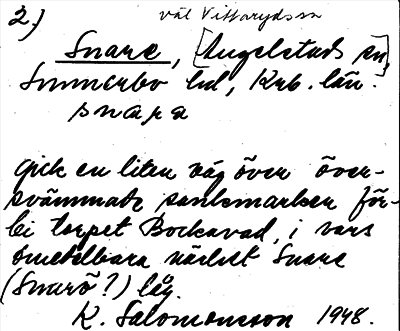 2.) väl Vittarydssn
Snare, [Angelstads sn,]
Sunnerbo hd, Krb. län.
snara
gick en liten väg över över-
svämmade sankmarker för-
bi torpet Bockavad, i vars
omedelbara närhet Snare
(Snarö?) låg.
K. Salomonsson 1948.